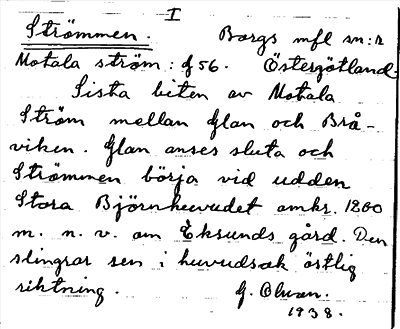 I
Strömmen. Borgs mfl sn:r
Motala ström: f56. Östergötland.
Sista biten av Motala
Ström mellan Glan och Brå-
viken. Glan anses sluta och
Strömmen börja vid udden
Stora Björnhuvudet omkr. 1200
m. n. v. om Eksunds gård. Den
slingrar sen i huvudsak östlig
riktning. G.
1938.